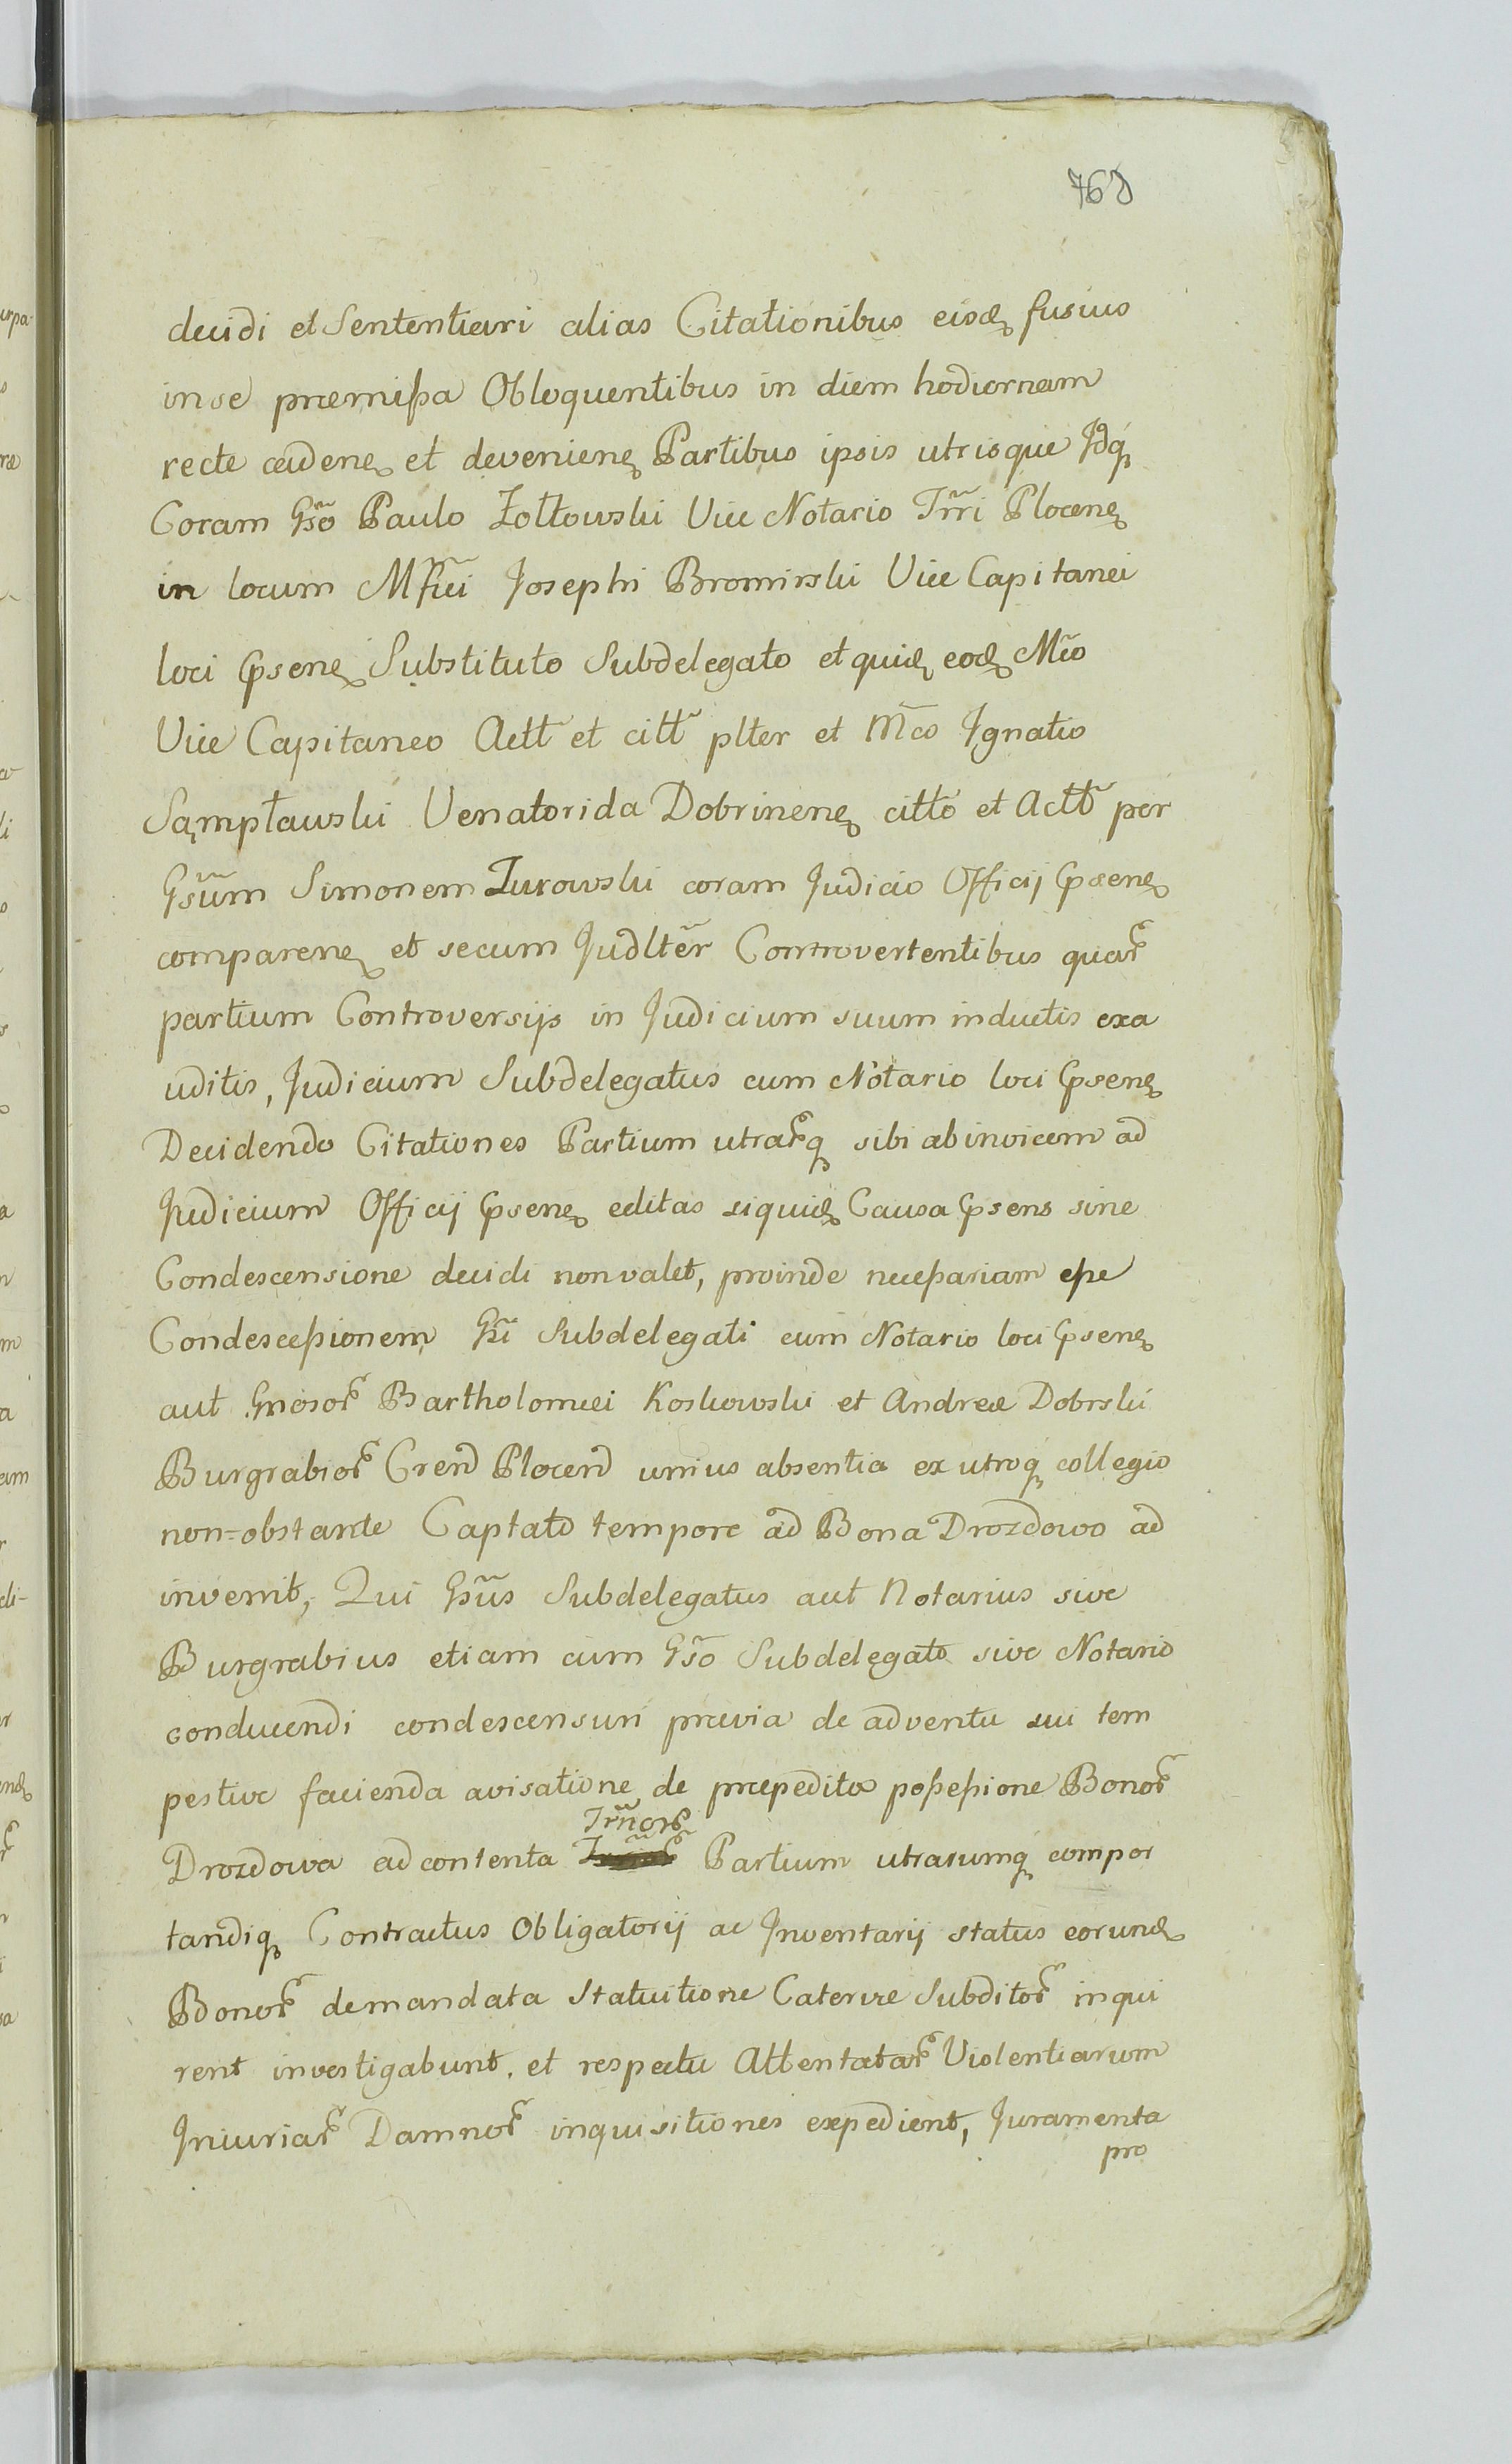 768
decidi et Sententiari alias Citationibus eisd fusius
in se præmissa Obloquentibus in diem hodiernam
recte caden et devenien Partibus ipsis utrisque Idq
Coram Gso Paulo Zołtowski Vice Notario Trri Plocen
in locum Mfici Josephi Bromirski Vice Capitanei
loci Psen Substituto Subdelegato et quid eod Mco
Vice Capitaneo Actt et citt plter et Mco Ignatio
Sąmpławski Venatorida Dobrinen citto et Actt per
Gsum Simonem Zurowski coram Judicio Officij Psen
comparen et secum Judlter Controvertentibus quar
partium Controversijs in Judicium suum inductis exa
uditis, Judicium Subdelegatus cum Notario loci Psen
Decidendo Citationes Partium utrarq sibi ab invicem ad
Judicium Officij Psen editas siquid Causa Psens sine
Condescensione decidi non valet, proinde necessariam esse
Condescessionem Gsi Subdelegati cum Notario loci Psen
aut Gnosor Bartholomei Koskowski et Andreæ Dobrski
Burgrabior Cren Plocen unius absentia ex utroq collegio
non-obstante Captato tempore ad Bona Drozdowo ad
invenit, Qui Gsus Subdelegatus aut Notarius sive
Burgrabius etiam cum Gso Subdelegato sive Notario
conducendi condescensuri prævia de adventu sui tem
pestive facienda avisatione de præpedita possessione Bonor
Trnor
Drozdowa ad contenta Partium utrarumq compor
tandiq Contractus Obligatorij ac Inventarij status eorund
Bonor demandata Statuitione Catervæ Subditor inqui
rent investigabunt. et respectu Attentatar Violentiarum
Iniuriar Damnor inquisitiones expedient, Juramenta
pro